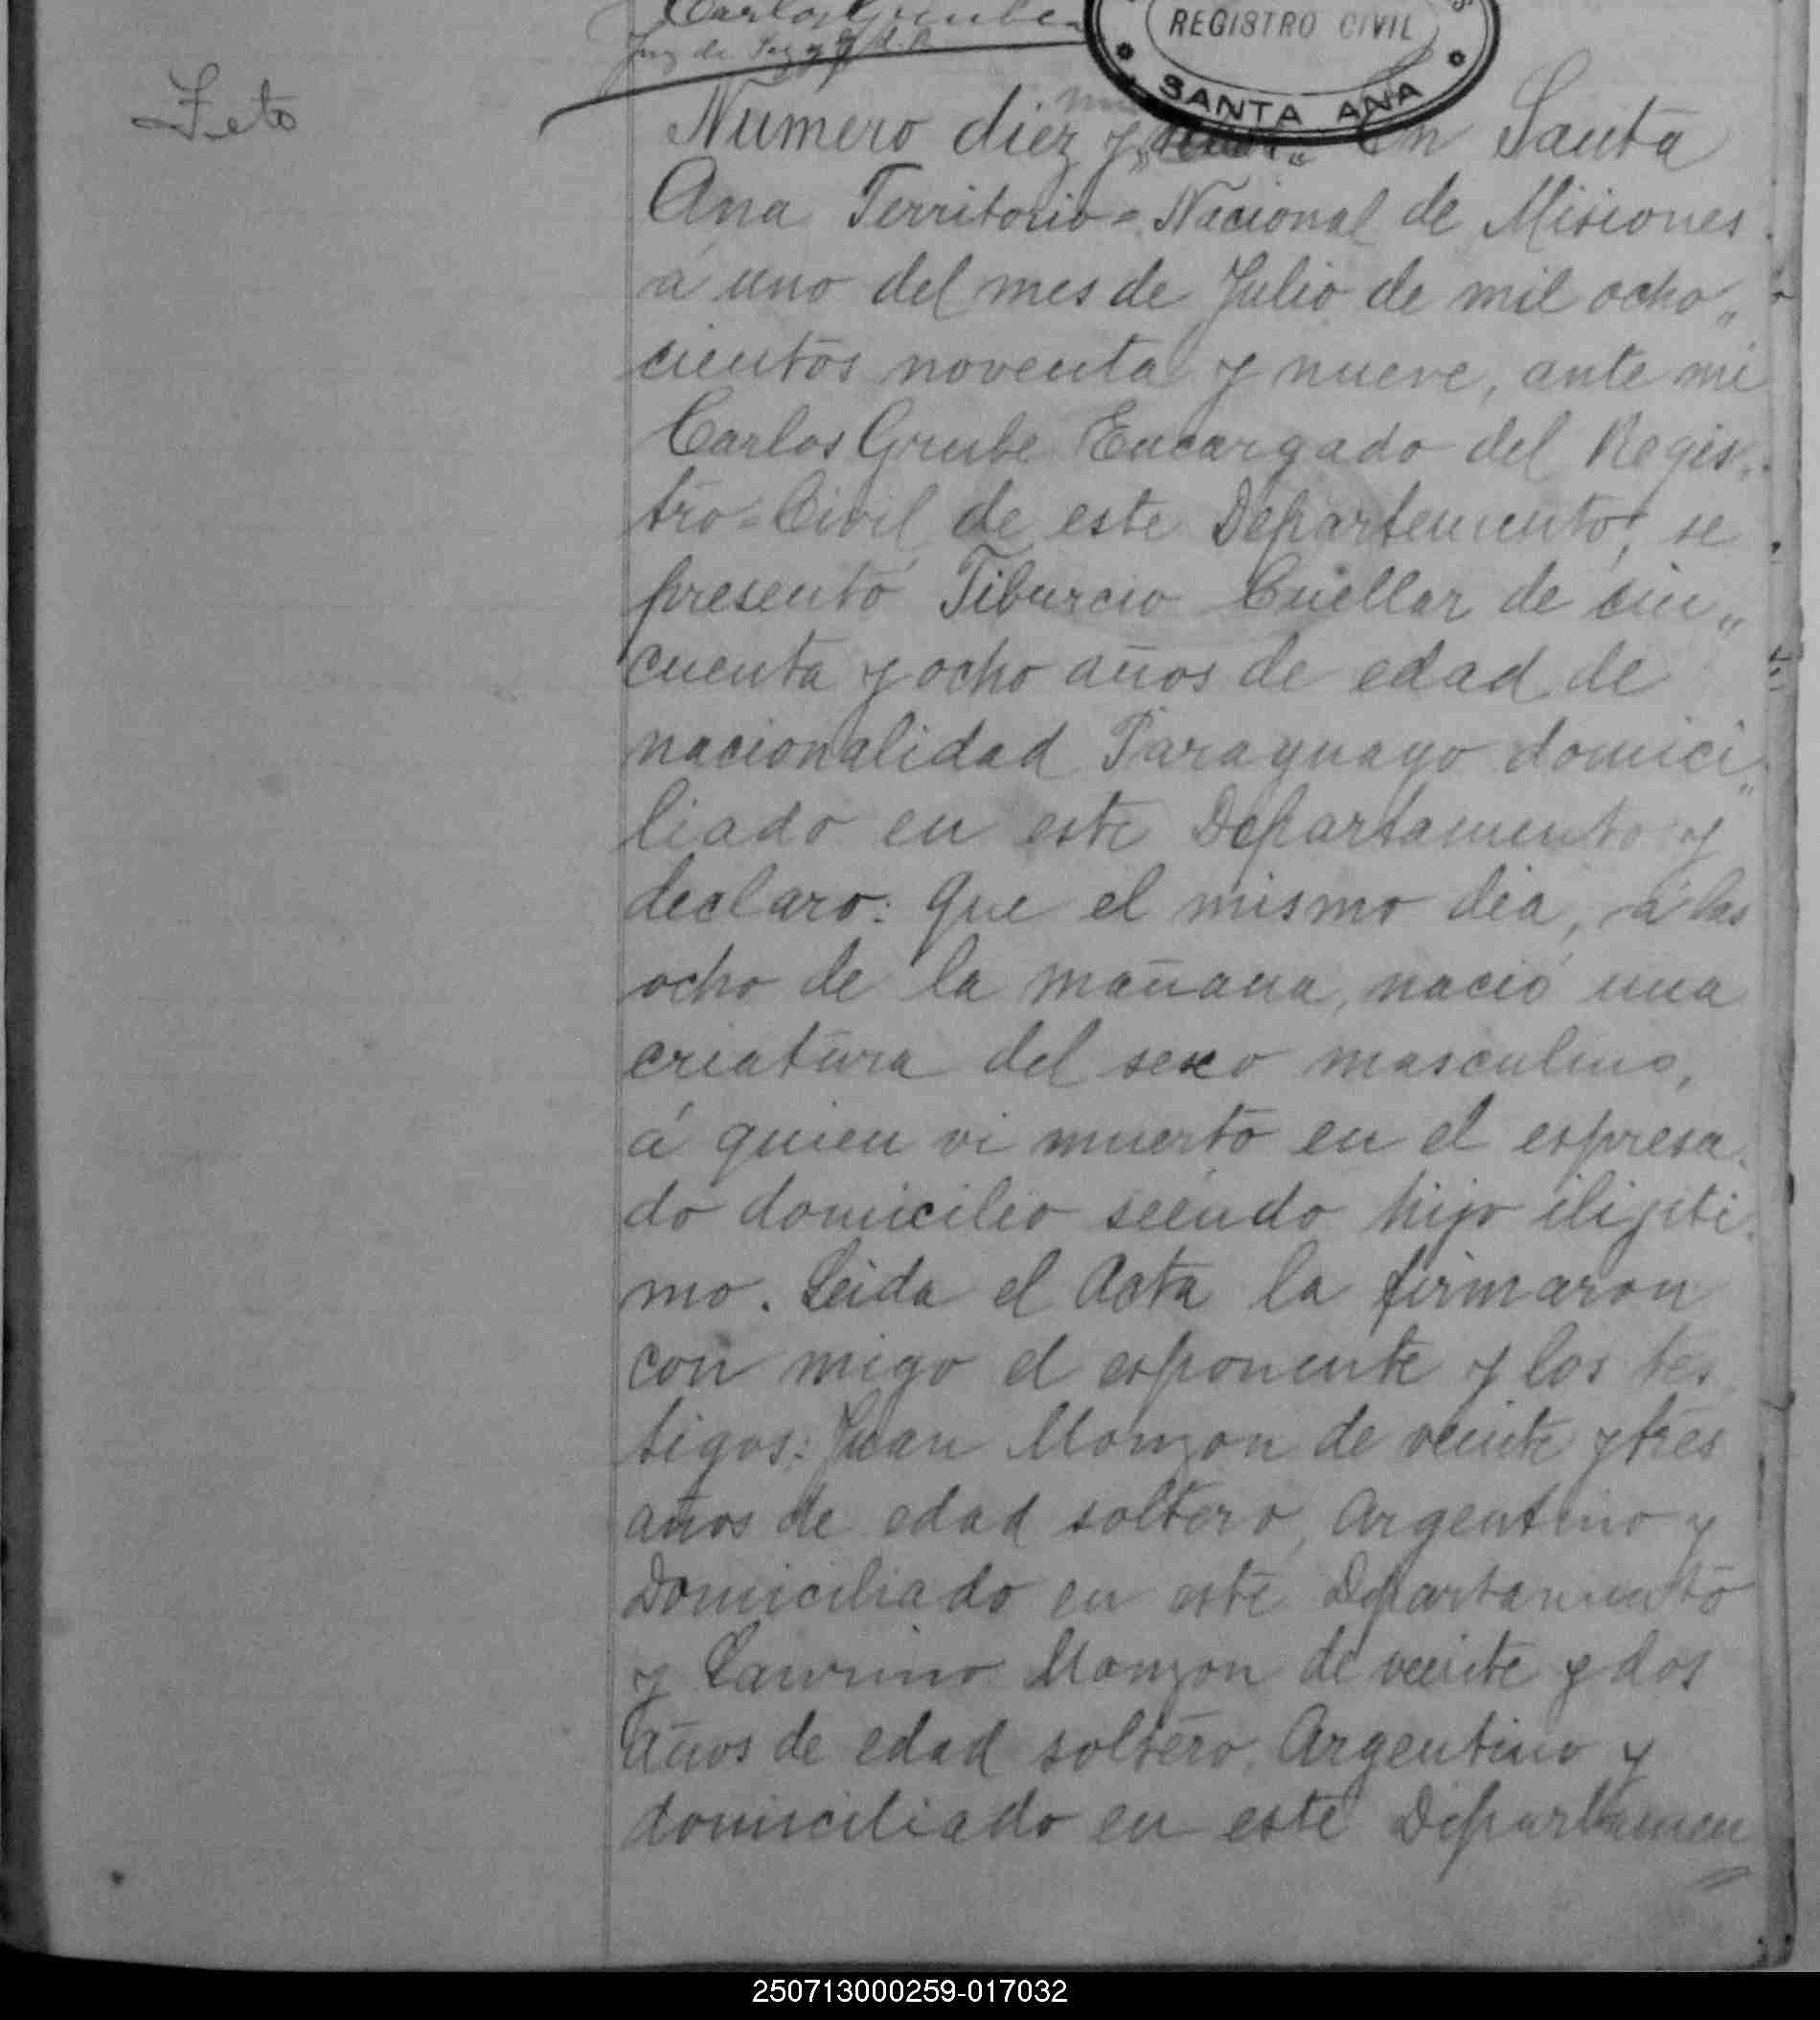 Carlos Grube
Juez de Paz
REGISTRO CIVIL
SANTA ANA
Feto
Numero diez y En Santa
Ana Territorio=Nacional de Misiones
á uno del mes de Julio de mil ocho„
cientos noventa y nueve, ante mi
Carlos Grube Encargado del Regis„
tro=Civil de este Departemento, se
presentó Tiburcio Cuellar de cin„
cuenta y ocho años de edad de
nacionalidad Paraguayo domici„
liado en este Departamento y
declaro: Que el mismo dia, á las
ocho de la mañana, nació una
criatura del sexo masculino,
á quien vi muerto en el espresa„
do domicilio seendo hijo iligiti„
mo. Leida el Acta la firmaron
con migo el esponente y los tes
tigos: Juan Monzon de veinte y tres
años de edad soltero, Argentino y
Domiciliado en este Departamento
y Laurino Monzon de veinte y dos
años de edad soltero, Argentino y
domiciliado en este Departamen
250713000259-017032